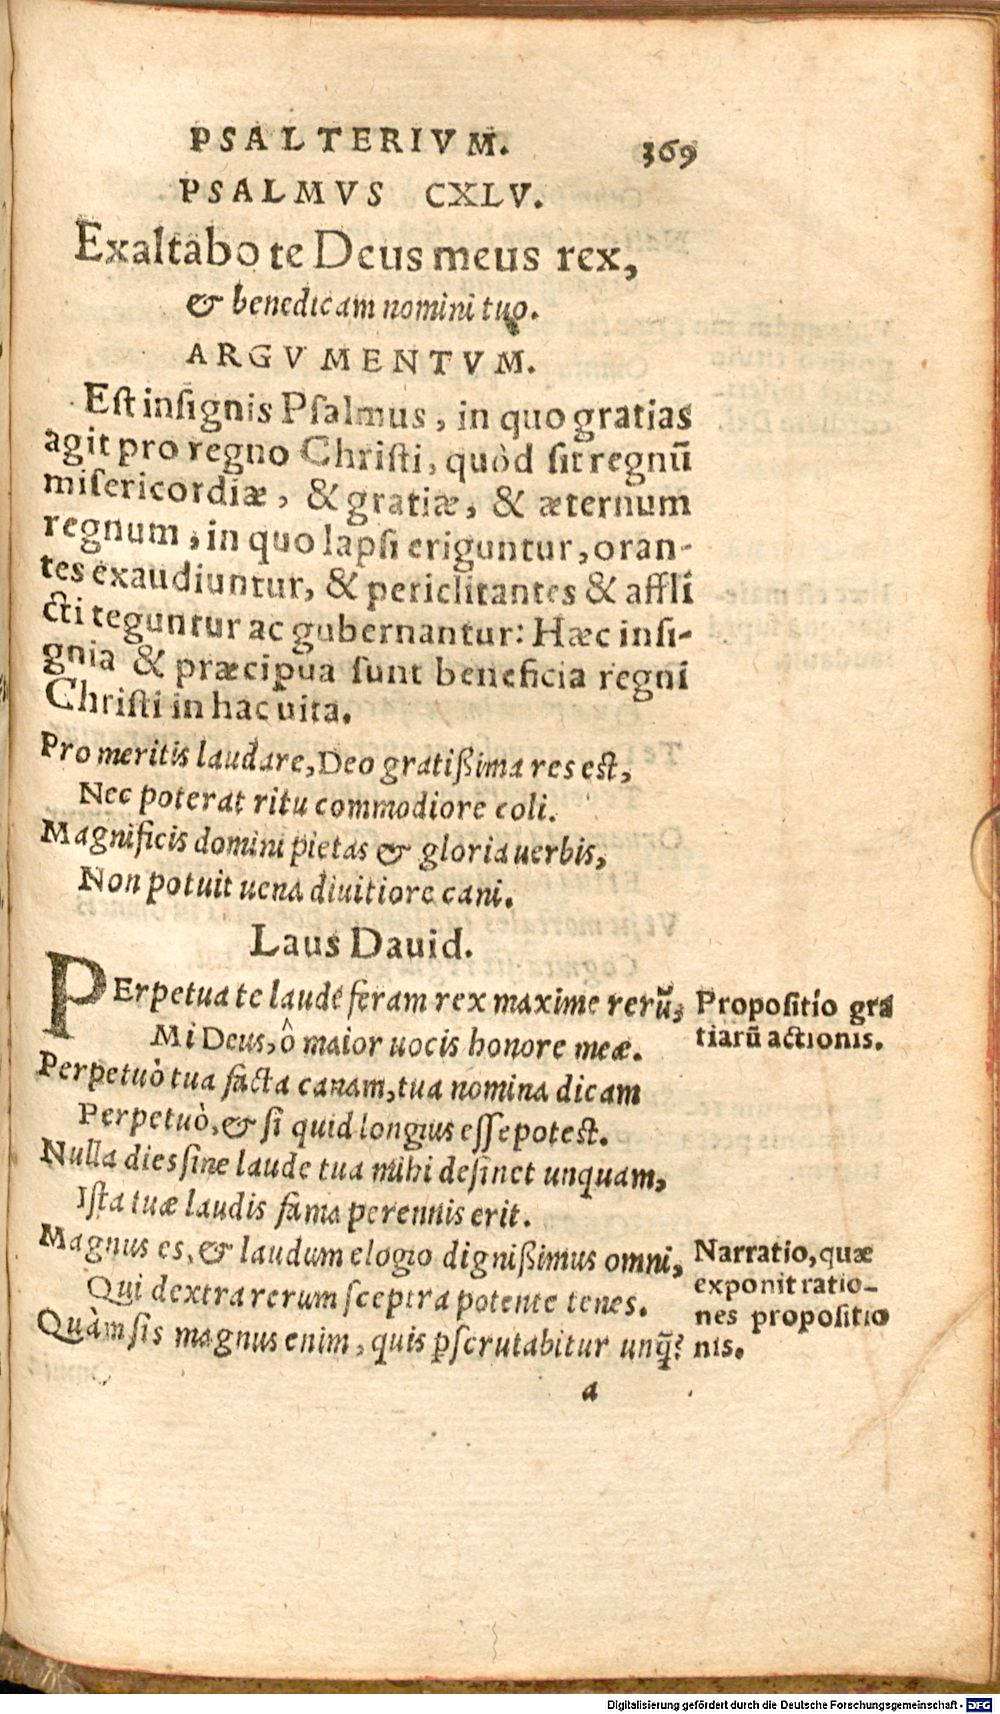 PSALTERIVM. 369
PSALMVS CXLV.
Exaltabo te Deus meus rex,
& benedicam nomini tuo.
ARGVMENTVM.
Est insignis Psalmus, in quo gratias
agit pro regno Christi, quòd sit regnũ
misericordiæ, & gratiæ, & æternum
regnum, in quo lapsi eriguntur, oran-
tes exaudiuntur, & periclitantes & affli
cti teguntur ac gubernantur: Hæc insi-
gnia & præcipua sunt beneficia regni
Christi in hac uita.
Pro meritis laudare, Deo gratißima res est,
Nec poterat ritu commodiore coli.
Magnificis domini pietas & gloria uerbis,
Non potuit uena diuitiore cani.
Laus Dauid.
PErpetua te laude feram rex maxime rerũ,
Mi Deus, ô maior uocis honore meæ.
Perpetuò tua facta canam, tua nomina dicam
Perpetuò, & si quid longius esse potest.
Nulla dies sine laude tua mihi desinet unquam,
Ista tuæ laudis fama perennis erit.
Magnus es, & laudum elogio dignißimus omni,
Qui dextra rerum sceptra potente tenes.
Quàm sis magnus enim, quis ꝑscrutabitur unq̃?
a
Propositio gra
tiarũ actionis.
Narratio, quæ
exponit ratio-
nes propositio
nis.
Digitalisierung gefördert durch die Deutsche Forschungsgemeinschaft - DFG